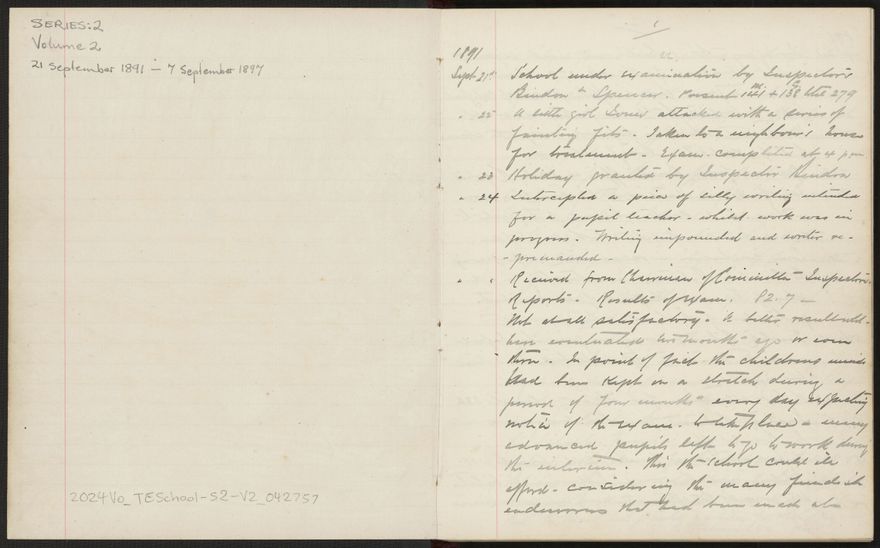 SERIES:2
Volume 2
21 September 1891 – 7 September 1897
2024Vo_TESchool-S2-V2_042757
1
1891
Sept 21st School under examination by Inspectors
Bindon & Spencer. Present 141 + 138 total 279
" 22 A sixth girl attacked with a series of
fainting fits. Taken to a neighbour's house
for treatment. Exam. completed at 4 pm
" 23 Holiday granted by Inspector Bindon
" 24 Intercepted a piece of silly writing intended
for a pupil teacher - whilst work was in
progress. Writing impounded and writer re-
-primanded.
" " Received from Chairman of Committee Inspectors
Reports. Results of exam. 82.7 –
Not at all satisfactory. A better result would
have eventuated two months ago or even
three. In point of fact the childrens minds
had been kept on a stretch during a
period of four months every day expecting
notice of the exam. to take place & many
advanced pupils left to go to work during
the interim. This the School could ill
afford - considering the many
endeavours that had been made